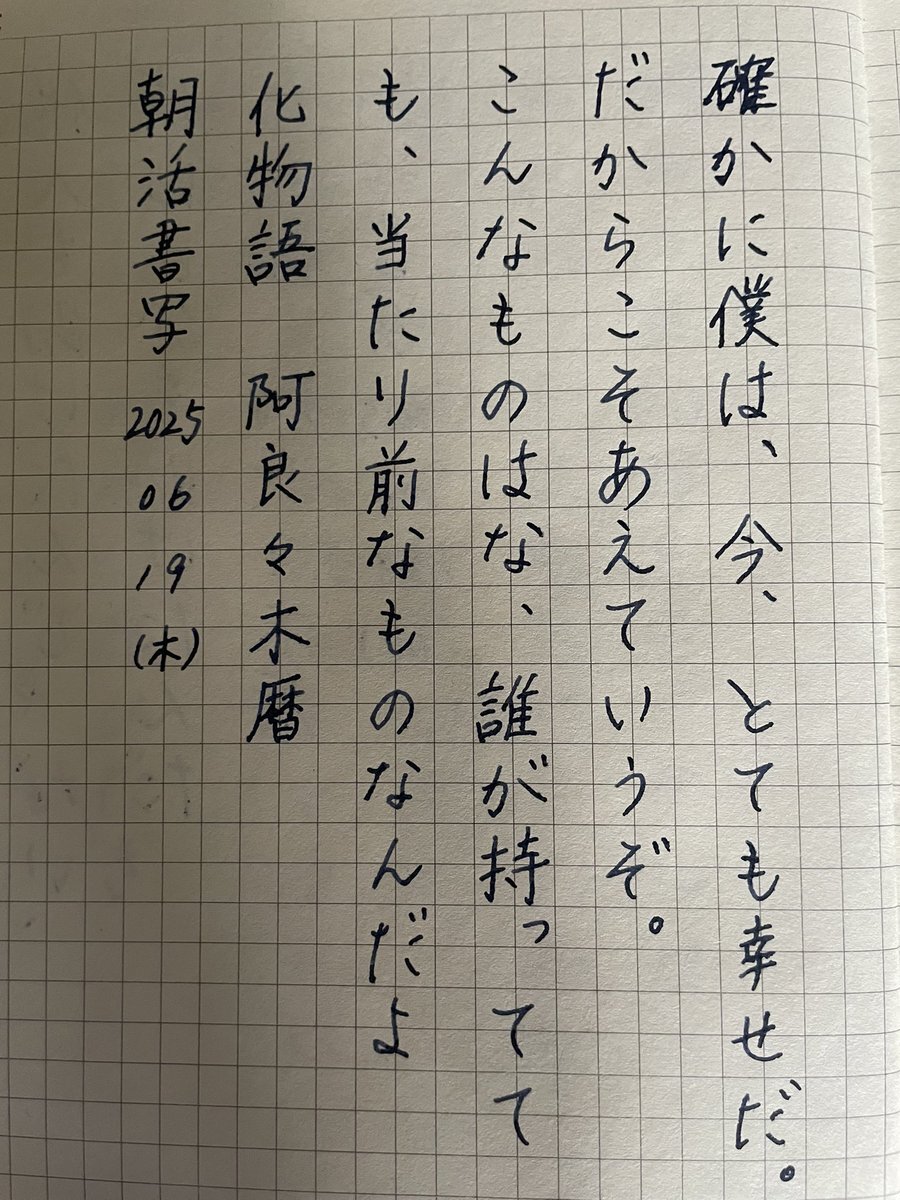 確かに僕は、今、とても幸せだ。
だからこそあえていうぞ。
こんなものはな、誰が持ってて
も、当たり前なものなんだよ
化物語 阿良々木暦
朝活書写 2025 06 19 (木)